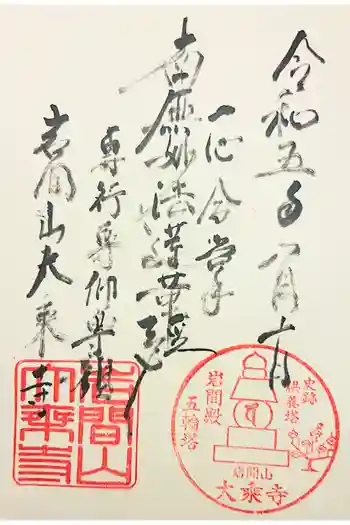 令和五年八月十日
一心合掌
南無妙法蓮華経
専行専仰専唱
岩間山大乗寺
岩間山大乗寺
史跡
供養塔
岩間殿
五輪塔
岩間山
大乗寺